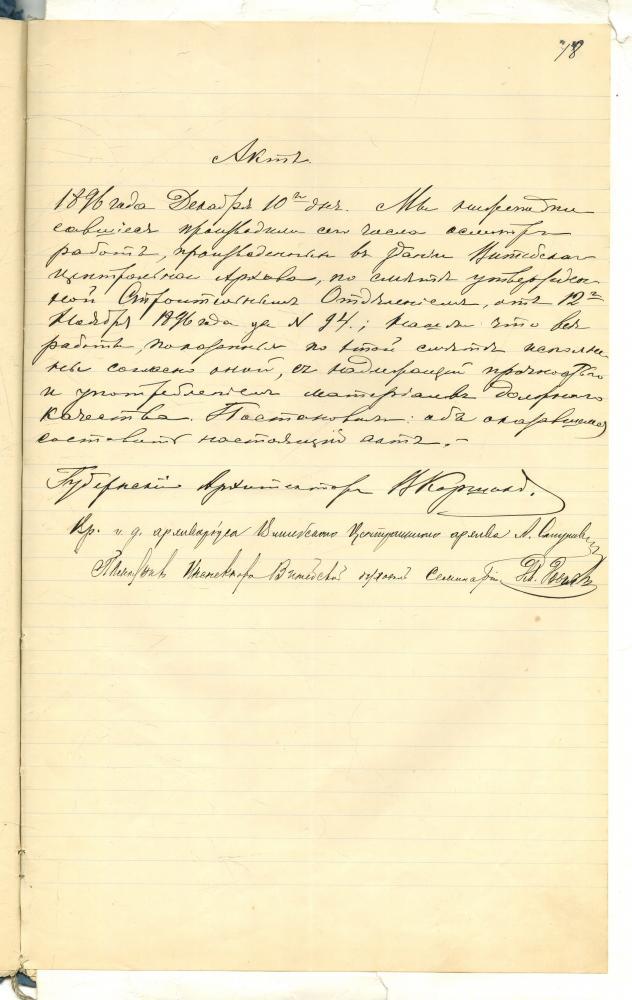 78
Актъ.
1896 года Декабря 10го дня. Мы нижеподпи
савшіеся производили сего числа осмотръ
работъ, произведенныхъ въ зданіи Витебскаго
центральнаго Архива, по смѣтѣ утвержден-
ной Строительнымъ Отдѣленіемъ, отъ 12го
Ноября 1896 года за N 94.; нашли что всѣ
работы, показанныя по этой смѣтѣ исполне-
ны согласно оной, съ надлежащей прочностью
и употребленіемъ матеріаловъ должнаго
качества. Постановили: объ оказавшемся
составить настоящій актъ.-
Губернскій Архитекторъ В Коршиковъ.
Вр. и. д. архиваріуса Витебскаго Центральнаго архива А. Сапуновъ
Помощникъ Инспектора Витебской духовной Семинаріи